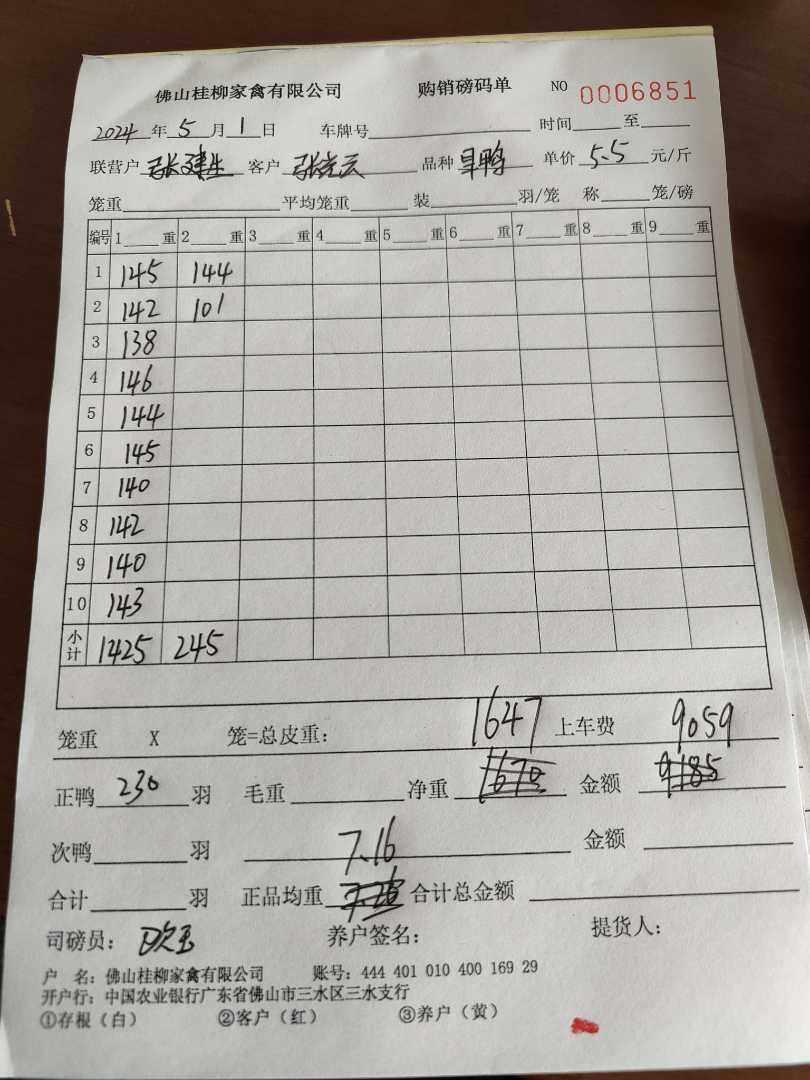 佛山桂柳家禽有限公司 购销磅码单 NO 0006851
2024年5月1日 车牌号 时间 至
联营户 张建生 客户 张光云 品种 旱鸭 单价 5.5 元/斤
笼重 平均笼重 装 羽/笼 称 笼/磅
编号 1 重 2 重 3 重 4 重 5 重 6 重 7 重 8 重 9 重
1 145 144
2 142 101
3 138
4 146
5 144
6 145
7 140
8 142
9 140
10 143
小计 1425 245
笼重 X 笼=总皮重: 1647 上车费 9059
正鸭 230 羽 毛重 净重 1670 金额 9185
次鸭 羽 7.16 金额
合计 羽 正品均重 7.26 合计总金额
司磅员: 养户签名: 提货人:
户 名: 佛山桂柳家禽有限公司 账号: 444 401 010 400 169 29
开户行: 中国农业银行广东省佛山市三水区三水支行
①存根(白) ②客户(红) ③养户(黄)